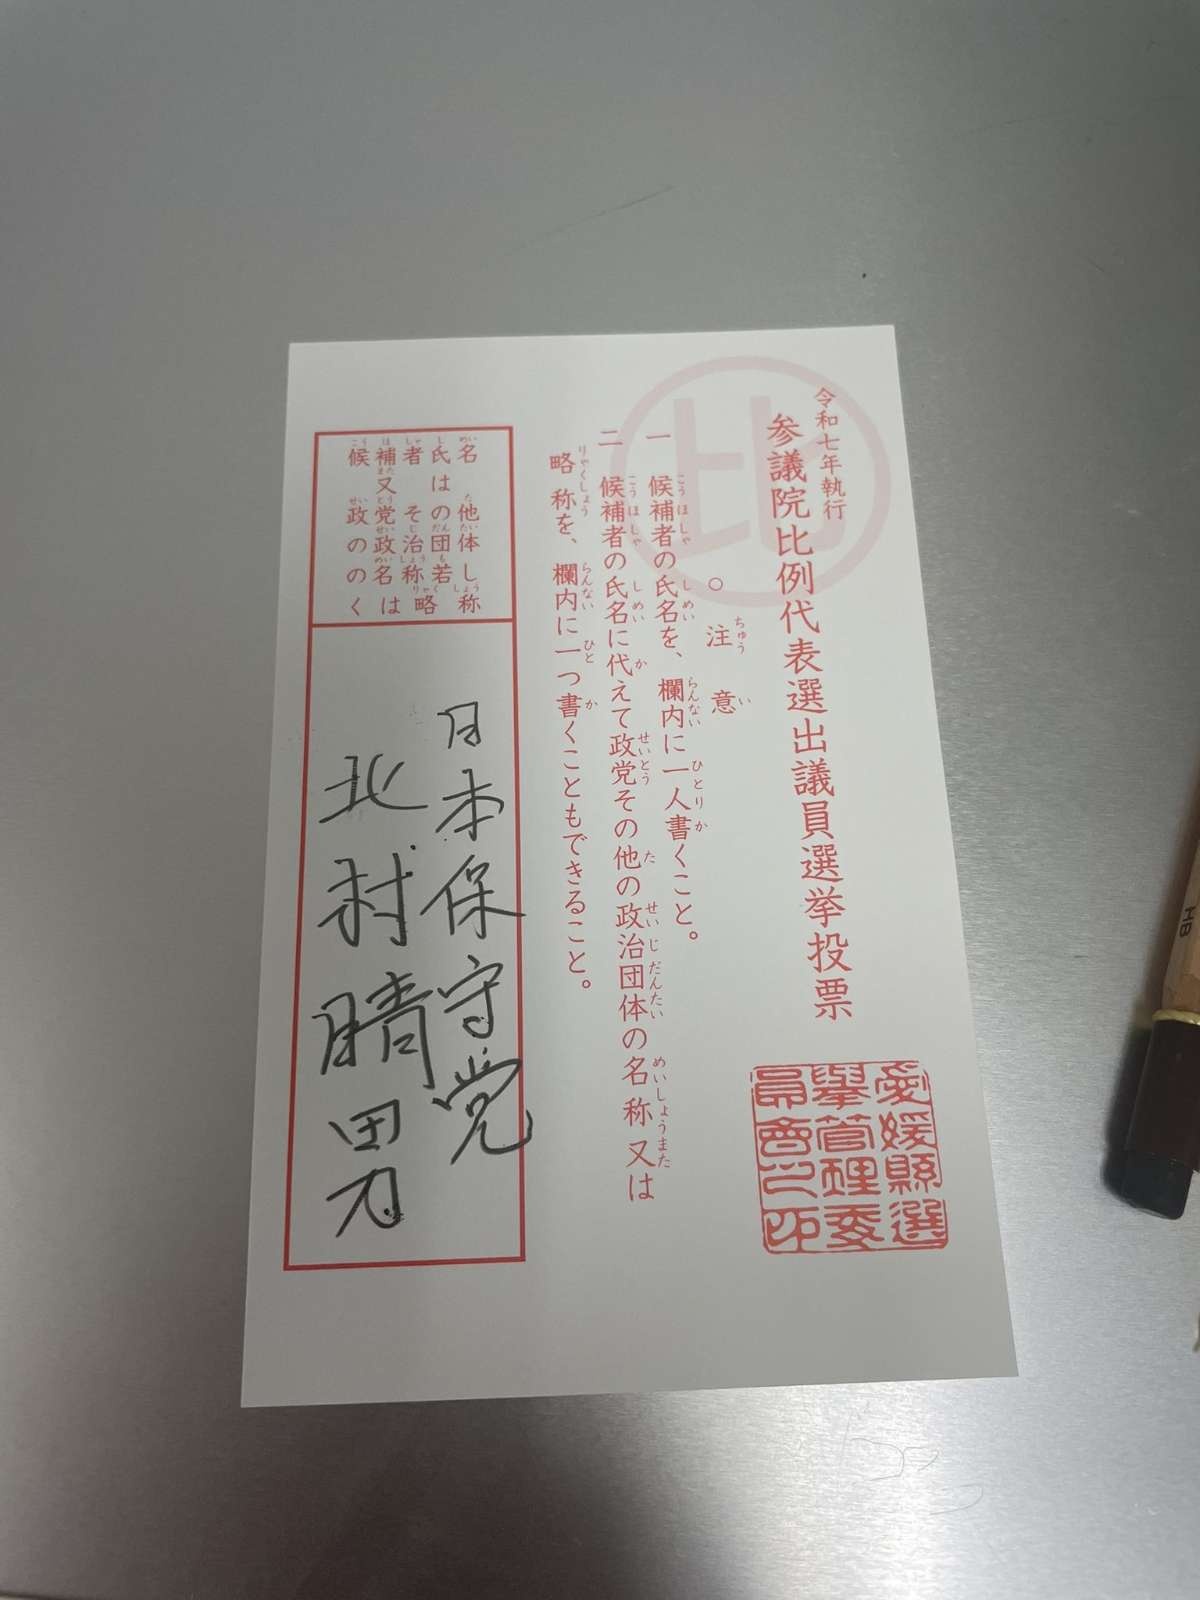 令和七年執行
参議院比例代表選出議員選挙投票
比
○注意
一 候補者の氏名を、欄内に一人書くこと。
二 候補者の氏名に代えて政党その他の政治団体の名称又は
略称を、欄内に一つ書くこともできること。
愛媛縣選
擧管理委
員會之印
候補者氏名
又は
政党その他
の政治団体
の名称若し
くは略称
日本保守党
北村晴男
HB